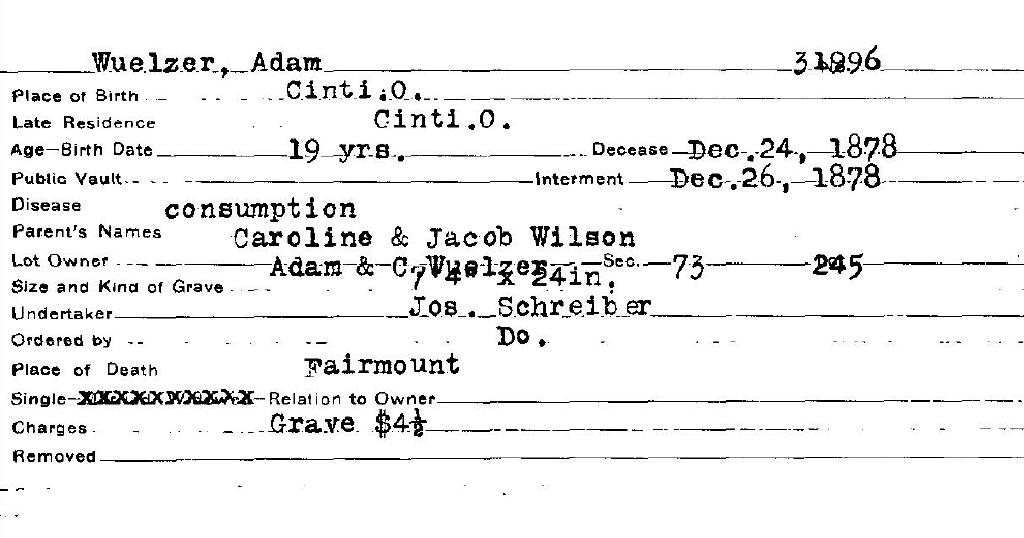 Wuelzer, Adam 31896
Place of Birth Cinti.O.
Late Residence Cinti.O.
Age—Birth Date 19 yrs. Decease Dec.24, 1878
Public Vault Interment Dec.26, 1878
Disease consumption
Parent's Names Caroline & Jacob Wilson
Lot Owner Adam & C. Wuelzer Sec. 73 245
Size and Kind of Grave x 24in.
Undertaker Jos. Schreiber
Ordered by Do.
Place of Death Fairmount
Single— Relation to Owner
Charges Grave $4½
Removed